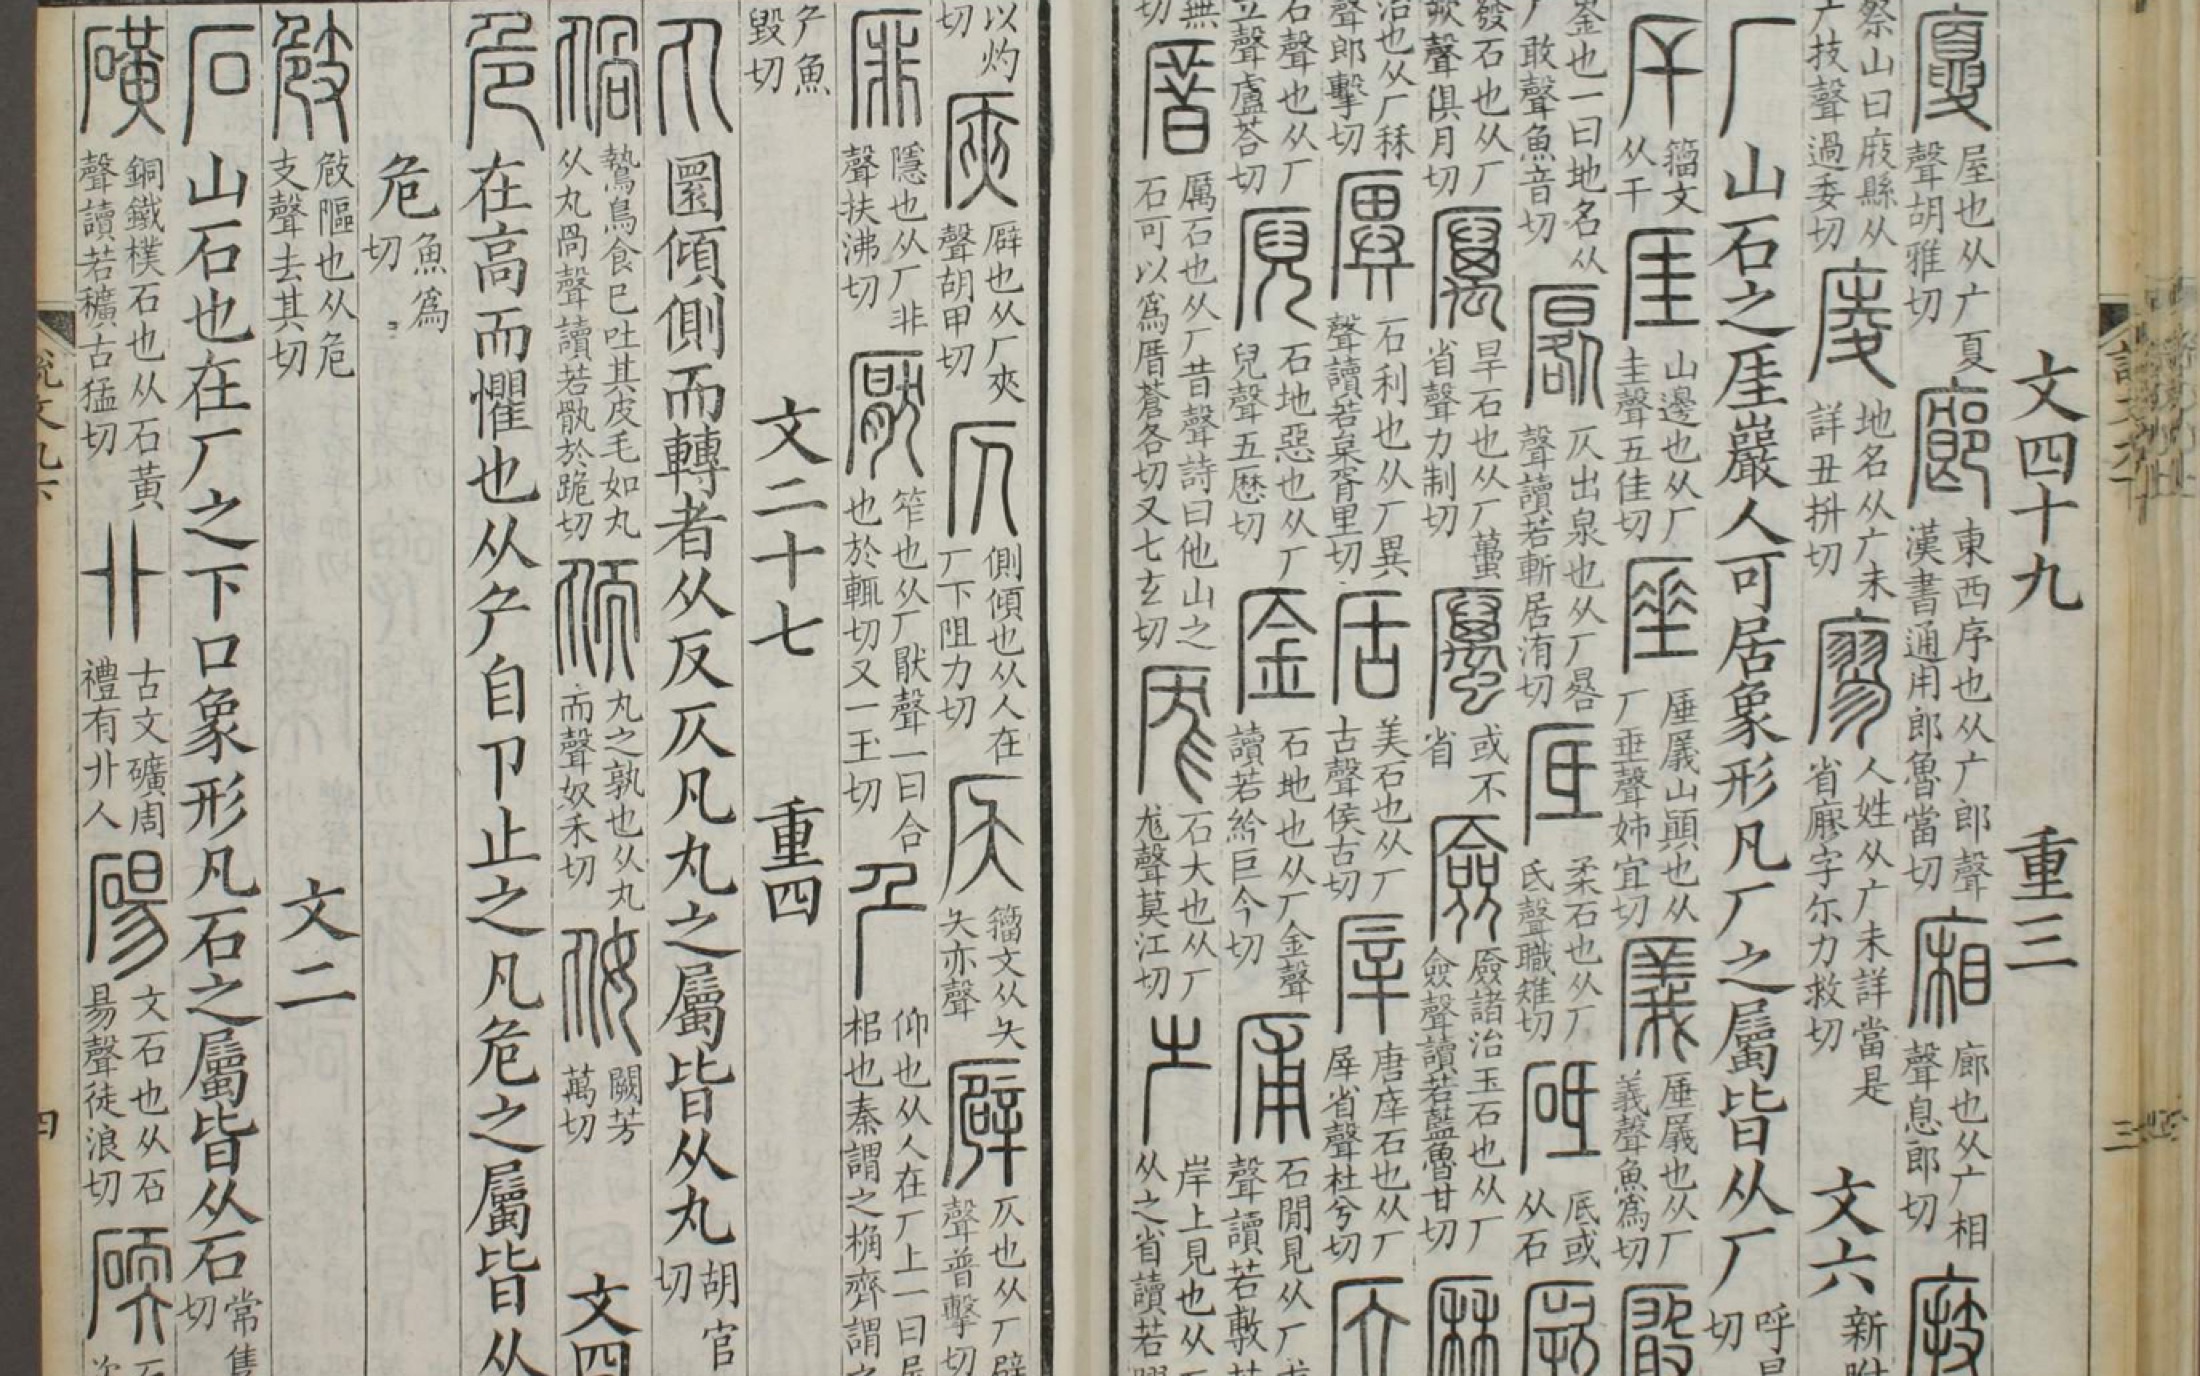 文四十九 重三
廈 屋也从广夏聲胡雅切 廊 東西序也从广郎聲漢書通用郎魯當切 廂 廊也从广相聲息郎切 庪
祭山曰庪縣从广技聲過委切 庱 地名从广未詳丑拼切 廖 人姓从广未詳當是省廫字尒力救切 文六 新附
厂 山石之厓巖人可居象形凡厂之屬皆从厂 呼 切
厈 籀文从干 厓 山邊也从厂圭聲五佳切 厜 厜㕒山顚也从厂垂聲姉宜切 㕒 厜㕒也从厂義聲魚爲切 厰
崟也一曰地名从厂敢聲魚音切 厬 仄出泉也从厂晷聲讀若軌居洧切 厎 柔石也从厂氐聲職雉切 砥 厎或从石 厥
發石也从厂欮聲俱月切 厲 旱石也从厂蠆省聲力制切 厲 或不省 厱 厱諸治玉石也从厂僉聲讀若藍魯甘切 厤
治也从厂秝聲郎擊切 㕢 石利也从厂異聲讀若枲胥里切 居 美石也从厂古聲侯古切 唐厗石也从厂屖省聲杜兮切
石聲也从厂立聲盧荅切 石地惡也从厂兒聲五歷切 厒 石地也从厂金聲讀若紟巨今切 石閒見从厂 聲讀若敷
無 切 厝 厲石也从厂昔聲詩曰他山之石可以爲厝蒼各切又七互切 厖 石大也从厂尨聲莫江切 岸上見也从 从之省讀若
以灼切 㕍 廦也从厂夾聲胡甲切 仄 側傾也从人在厂下阻力切 籀文从夨夨亦聲 仄也从厂辟聲普擊切
厞 隱也从厂非聲扶沸切 厭 笮也从厂猒聲一曰合也於輒切又一琰切 厃 仰也从人在厂上一曰屋梠也秦謂之桷齊謂之
厃魚毀切 文二十七 重四
丸 圜傾側而轉者从反仄凡丸之屬皆从丸 胡官切
鷙鳥食已吐其皮毛如丸从丸咼聲讀若骫於跪切 丸之孰也从丸而聲奴禾切 闕芳萬切 文四
危 在高而懼也从厃自卪止之凡危之屬皆从
危 魚爲切
攱 攱䧢也从危支聲去其切 文二
石 山石也在厂之下口象形凡石之屬皆从石 常隻切
磺 銅鐵樸石也从石黃聲讀若穬古猛切 卝 古文礦周禮有卝人 碭 文石也从石昜聲徒浪切 碝
説文九下
四
三